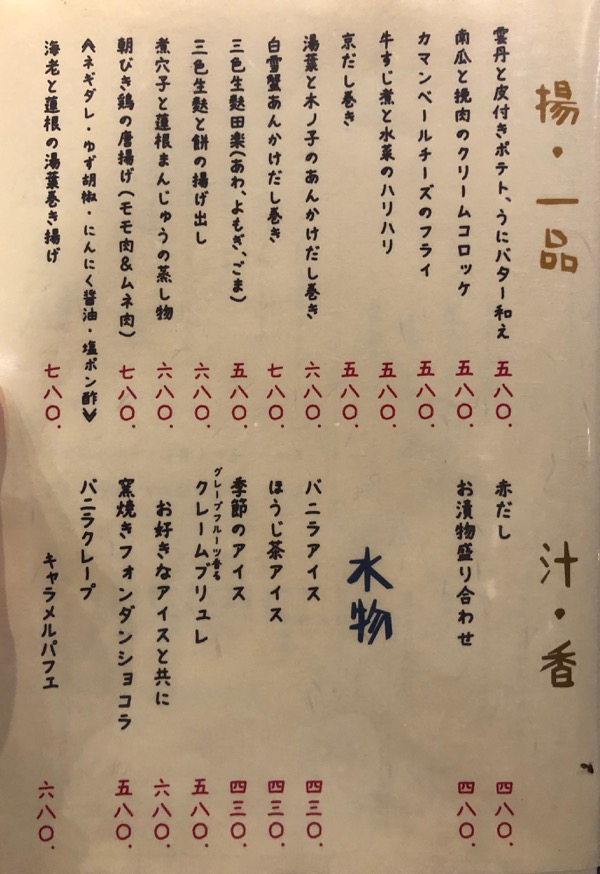 揚・一品
雲丹と皮付きポテト、うにバター和え 五八〇.
南瓜と挽肉のクリームコロッケ 五八〇.
カマンベールチーズのフライ 五八〇.
牛すじ煮と水菜のハリハリ 五八〇.
京だし巻き 五八〇.
湯葉と木ノ子のあんかけだし巻き 六八〇.
白雪蟹あんかけだし巻き 七八〇.
三色生麩田楽(あわ、よもぎ、ごま) 五八〇.
三色生麩と餅の揚げ出し 六八〇.
煮穴子と蓮根まんじゅうの蒸し物 六八〇.
朝びき鶏の唐揚げ(モモ肉&ムネ肉) 七八〇.
≪ネギダレ・ゆず胡椒・にんにく醤油・塩ポン酢≫
海老と蓮根の湯葉巻き揚げ 七八〇.
汁・香
赤だし 四八〇.
お漬物盛り合わせ 四八〇.
水物
バニラアイス 四三〇.
ほうじ茶アイス 四三〇.
季節のアイス 四三〇.
グレープフルーツ香る
クレームブリュレ 五八〇.
お好きなアイスと共に 六八〇.
窯焼きフォンダンショコラ 五八〇.
バニラクレープ
キャラメルパフェ 六八〇.